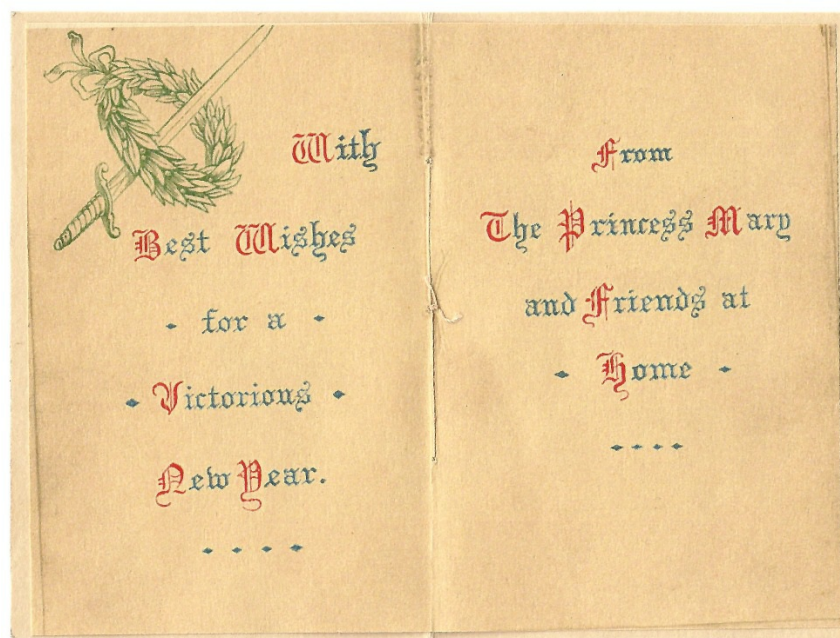 With
Best Wishes
for a
Victorious
New Year.
From
The Princess Mary
and Friends at
Home